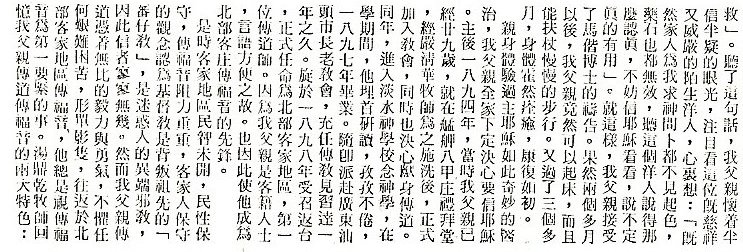 救」。聽了這句話，我父親已懷着半
信半疑的眼光，注目看這位既慈祥
又威嚴的陌生洋人，心裏想：「既
然家人爲我求神問卜都不見起色，
藥石也都無效，聽這個洋人說得那
麼認眞，不妨信耶穌看看，說不定
眞的有用」。就這樣，我父親接受
了馬偕博士的禱告。果然兩個多月
以後，我父親竟然可以起床，而且
能扶杖慢慢的步行。又過了三個多
月，身體霍然痊癒，康復如初。
親身體驗過主耶穌如此奇妙的醫
治，我父親全家下定決心要信耶穌
。主後一八九四年，當時我父親已
經廿九歲，就在艋舺八甲庄禮拜堂
，經嚴清華牧師爲之施洗後，正式
加入敎會，同時也決心獻身傳道。
同年，進入淡水神學校念神學，在
學期間，他埋首研讀，孜孜不倦，
一八九七年畢業。隨卽派赴廣東汕
頭市長老敎會，充任傳敎見習達一
年之久。旋於一八九八年受召返台
，正式任命爲北部客家地區，第一
位傳道師。因爲我父親是客籍人士
，言語方便之故。也因此使他成爲
北部客庄傳福音的先鋒。
是時客家地區民智未開，民性保
守，傳福音阻力重重，客家人保守
的觀念認爲基督敎是背叛祖先的「
番仔敎」，是迷惑人的異端邪敎，
因此信者寥寥無幾。然而我父親傳
道憑着無比的毅力與勇氣，不懼任
何艱難困苦，形單影隻，往返於北
部客家地區傳福音，他總是視傳福
音爲第一要緊的事。湯鼎乾牧師回
憶我父親傳道傳福音的兩大特色：